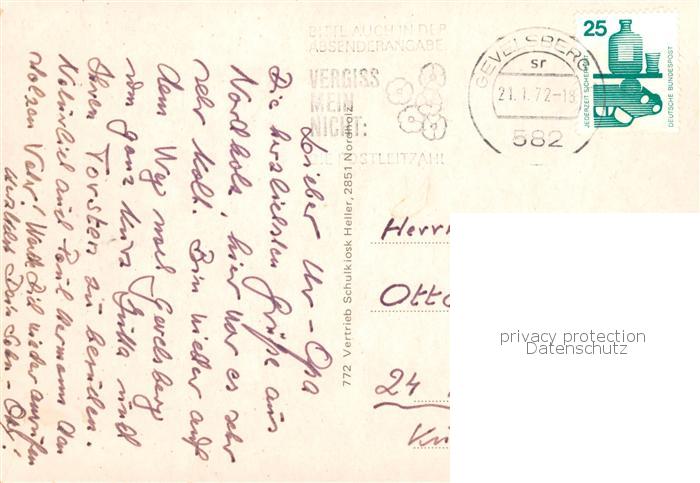 BITTE AUCH IN DER
ABSENDERANGABE
VERGISS
MEIN
NICHT:
DIE POSTLEITZAHL
GEVELSBERG
sr
21.1.72-18
582
25
JEDERZEIT SICHERHEIT
DEUTSCHE BUNDESPOST
Lieber Uhr-Opa
Die herzlichsten Grüße aus
Nordholz, hier war es sehr
sehr kalt. Bin wieder auf
dem Weg nach Gevelsberg
um ganz kurz Jutta und
Ihren Torsten zu besuchen.
Natürlich auch Paul Hermann den
stolzen Vater! Werde Dich wieder anrufen
Dein Sohn-Opa!
772 Vertrieb Schulkiosk Heller, 2851 Nordholz
Herrn
Otto
24
privacy protection
Datenschutz